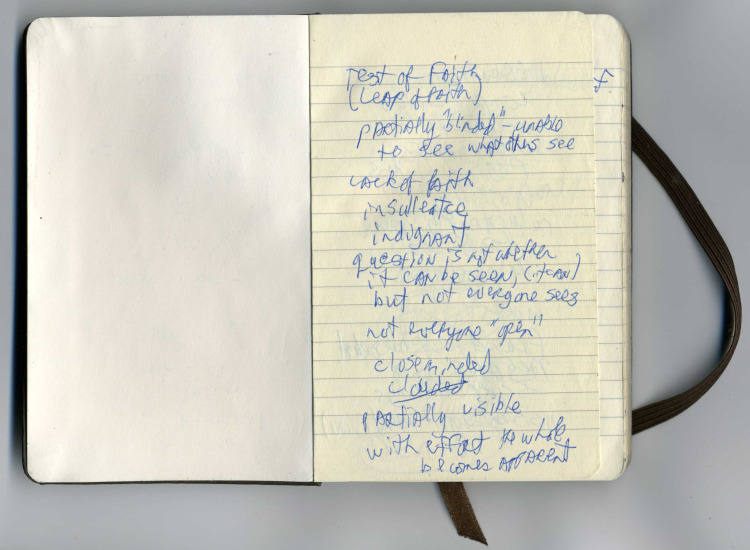 Test of Faith
(Leap of Faith)
PARTIAlly "blinded" - UNABle
to see what others see
LACK of faith
insullentce
indignANT
question is not whether
it CAN be SEEN, (it CAN)
but not everyone sees
not everyone "open"
closeminded
clouded
PARTIAlly visible
with effort the whole
becomes APPARENT